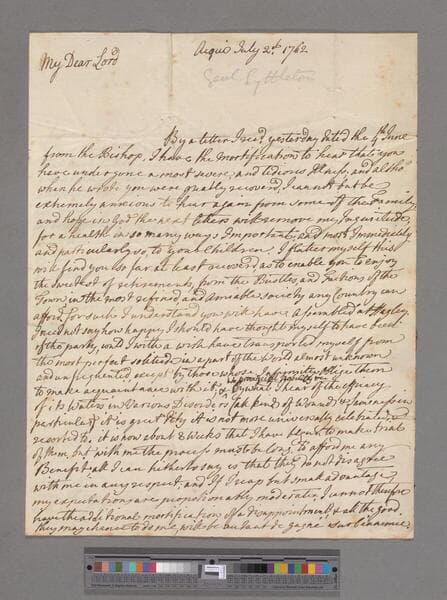 Acqui July 2d. 1762
My Dear Lord
Genl Lyttleton
By a letter I recd. yesterday dated the 4th June
from the Bishop, I have the mortification to hear that you
have undergone a most severe, and tedious Illness, and altho
when he wrote you were greatly recovered, I cannot but be
extremely anxious to hear again from some of the Family,
and hope in God the next letters will remove my Inquietude
for a health in so many ways Important, and most Immediately
and particularly so, to your Children. I flatter myself this
will find you so far at least recovered, as to enable you to enjoy
the sweetest of retirements, from the Bustles, and Factions of the
Town, in the most refined, and amiable society any Country can
afford, for such I understand you will have assembled at Hagley.
I need not say how happy I should have thought myself to have been
of the party, could I with a wish have transported myself from
the most perfect solitude in a part of the World almost unknown
and unfrequented except by those whose Infirmitys oblige them
to make acquaintance with it.
by what I hear of the efficacy
of its Waters in Various Disorders, & all kind of Wounds & Lameness in
particular, it is great Pity it is not more universally celebrated, and
resorted to. it is now about 3 Weeks that I have begun to make trial
of them, but with me the process must be long, to afford me any
Benefit, all I can hitherto say is that they do not disagree
with me in any respect, and if I reap but small advantage
my expectations are proportionably moderate, I cannot therefore
have the additional mortification of a disappointment & all the good
they may chance to do me, will be autant de gagné sur l'ennemie.